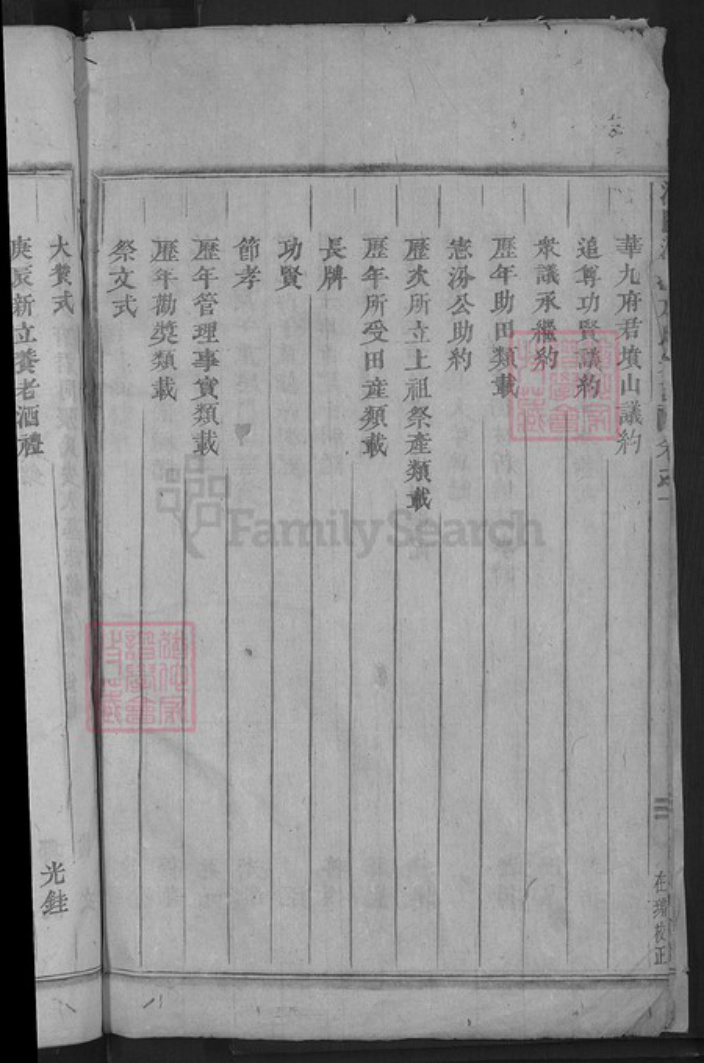 華九府君墳山議約
追尊功賢議約
衆議承繼約
歷年助田類載
憲汾公助約
歷次所立上祖祭產類載
歷年所受田產類載
長牌
功賢
節孝
歷年管理事實類載
歷年勸奬類載
祭文式
大贊式
庚辰新立養老酒禮
光銈
三
校正
FamilySearch